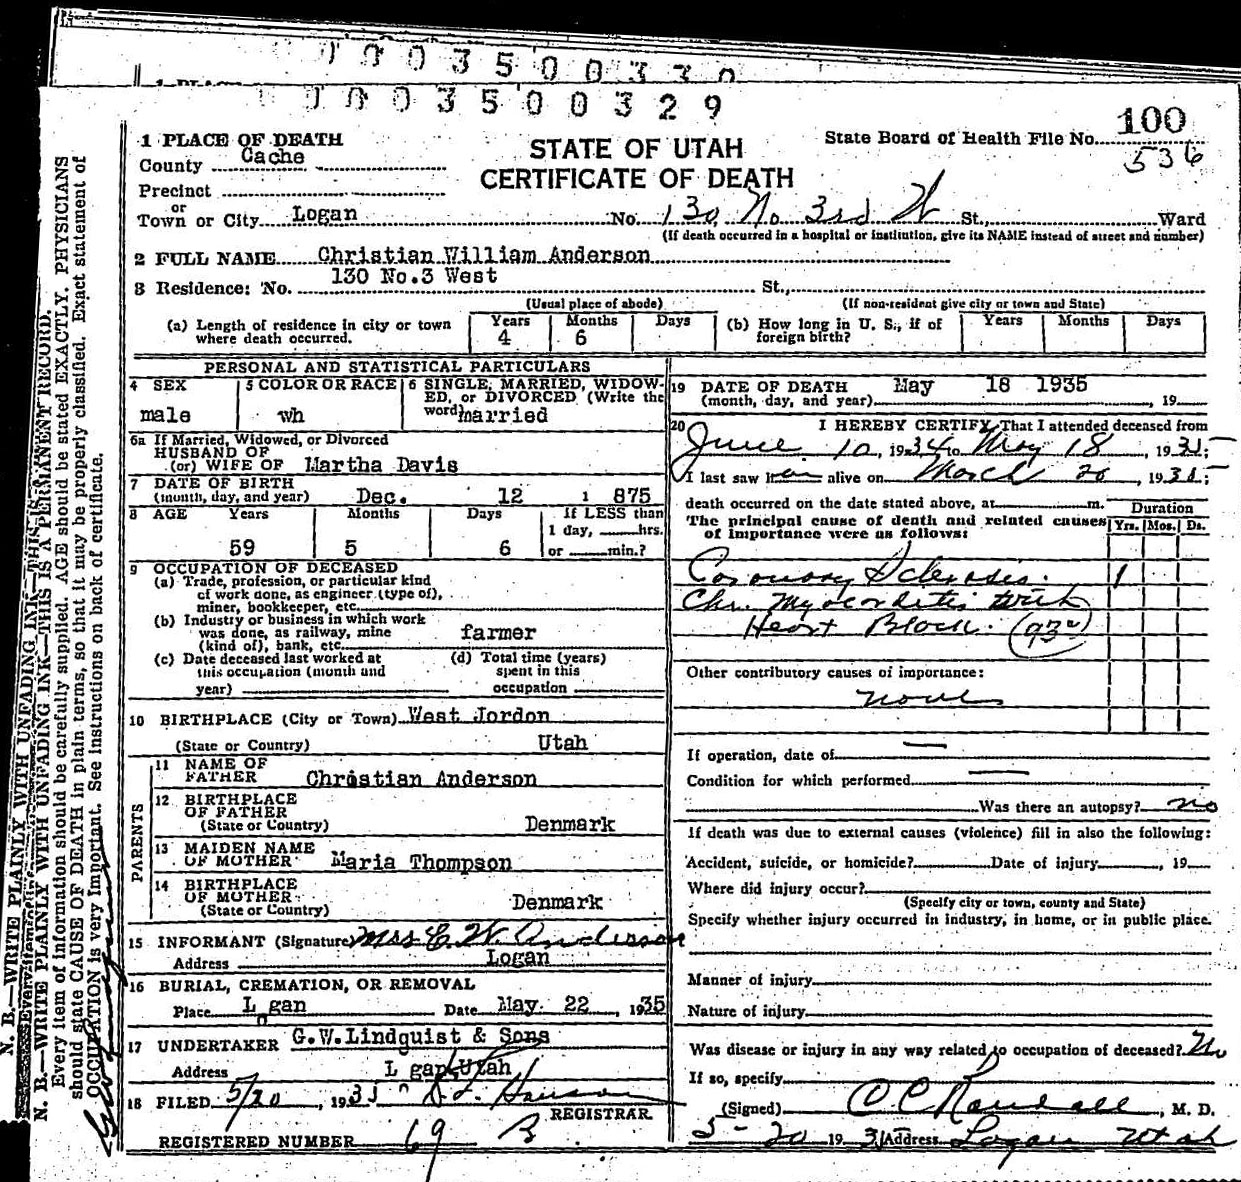 0003500330
1 PLACE
0003500329
100
State Board of Health File No.
536
1 PLACE OF DEATH
STATE OF UTAH
County Cache
CERTIFICATE OF DEATH
Precinct
or
Town or City Logan No. 130 No 3rd W St., Ward
(If death occurred in a hospital or institution, give its NAME instead of street and number)
2 FULL NAME Christian William Anderson
3 Residence: No. 130 No.3 West St.,
(Usual place of abode) (If non-resident give city or town and State)
(a) Length of residence in city or town where death occurred. Years 4 Months 6 Days
(b) How long in U. S., if of foreign birth? Years Months Days
PERSONAL AND STATISTICAL PARTICULARS
4 SEX
male
5 COLOR OR RACE
wh
6 SINGLE, MARRIED, WIDOW-
ED, or DIVORCED (Write the
word) married
6a If Married, Widowed, or Divorced
HUSBAND OF
(or) WIFE OF Martha Davis
7 DATE OF BIRTH
(month, day, and year) Dec. 12 1 875
8 AGE Years Months Days If LESS than
1 day, hrs.
59 5 6 or min.?
9 OCCUPATION OF DECEASED
(a) Trade, profession, or particular kind
of work done, as engineer (type of),
miner, bookkeeper, etc.
(b) Industry or business in which work
was done, as railway, mine farmer
(kind of), bank, etc.
(c) Date deceased last worked at
this occupation (month and
year)
(d) Total time (years)
spent in this
occupation
10 BIRTHPLACE (City or Town) West Jordon
(State or Country) Utah
PARENTS
11 NAME OF
FATHER Christian Anderson
12 BIRTHPLACE
OF FATHER
(State or Country) Denmark
13 MAIDEN NAME
OF MOTHER Maria Thompson
14 BIRTHPLACE
OF MOTHER
(State or Country) Denmark
15 INFORMANT (Signature) Mrs C. W. Anderson
Address Logan
16 BURIAL, CREMATION, OR REMOVAL
Place L gan Date May 22, 1935
o
17 UNDERTAKER G.W.Lindquist & Sons
Address L gan, Utah
18 FILED 5/20, 1935
REGISTRAR
REGISTERED NUMBER 69 B
19 DATE OF DEATH May 18 1935
(month, day, and year) , 19
20 I HEREBY CERTIFY, That I attended deceased from
June 10, 1934 to May 18, 1935;
I last saw him alive on March 20, 1935;
death occurred on the date stated above, at m.
The principal cause of death and related causes
of importance were as follows:
Duration
Yrs. Mos. Ds.
Coronary Sclerosis. 1
Chr. Myocarditis with
Heart Block.
Other contributory causes of importance:
none
If operation, date of —
Condition for which performed —
Was there an autopsy? no
If death was due to external causes (violence) fill in also the following:
Accident, suicide, or homicide? Date of injury , 19
Where did injury occur?
(Specify city or town, county and State)
Specify whether injury occurred in industry, in home, or in public place.
Manner of injury
Nature of injury
Was disease or injury in any way related to occupation of deceased? No
If so, specify
(Signed) O C Randall, M. D.
5-20 19 3 Address Logan Utah
N. B.—WRITE PLAINLY WITH UNFADING INK—THIS IS A PERMANENT RECORD.
Every item of information should be carefully supplied. AGE should be stated EXACTLY. PHYSICIANS
should state CAUSE OF DEATH in plain terms, so that it may be properly classified. Exact statement of
OCCUPATION is very important. See instructions on back of certificate.